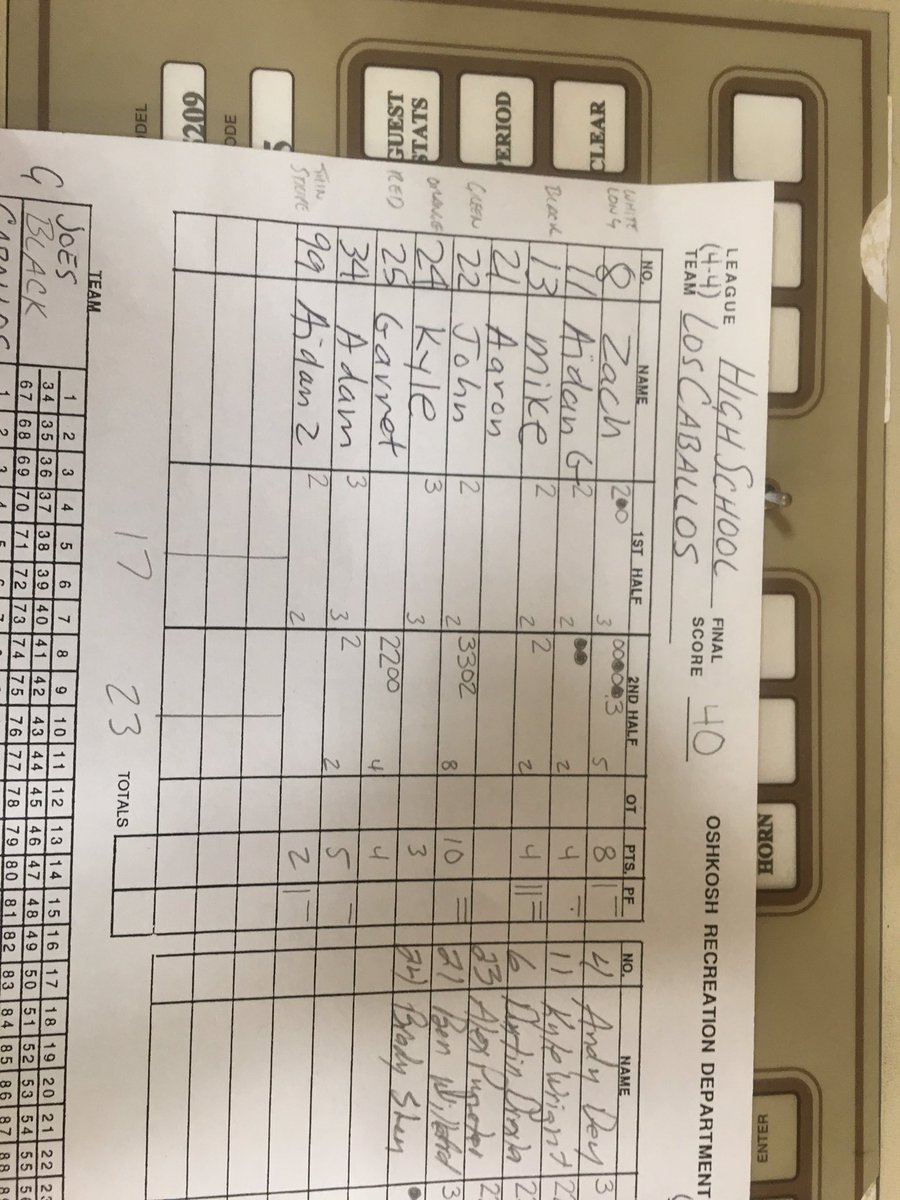 LEAGUE HIGH SCHOOL FINAL SCORE 40 OSHKOSH RECREATION DEPARTMENT
(4-4) TEAM LOS CABALLOS
NO. NAME 1ST HALF 2ND HALF OT PTS. PF NO. NAME
WHITE LONG 8 Zach 2 0 3 3 5 8 4 Andy
11 Aidan G 2 2 2 4 11 Kyle Wright
BLACK 13 Mike 2 2 2 2 4 6
21 Aaron 23 Alex
GREEN 22 John 2 2 3302 8 10 21 Ben
ORANGE 24 Kyle 3 3 3 24 Brady
RED 25 Garret 2200 4 4
34 Adam 3 3 2 2 5
THIN STRIPE 99 Aidan Z 2 2 2
17 23 TOTALS
TEAM 1 2 3 4 5 6 7 8 9 10 11 12 13 14 15 16 17 18 19 20 21 22
JOES BLACK 34 35 36 37 38 39 40 41 42 43 44 45 46 47 48 49 50 51 52 53 54 55
67 68 69 70 71 72 73 74 75 76 77 78 79 80 81 82 83 84 85 86 87 88
CLEAR
PERIOD
GUEST STATS
209
HORN
ENTER